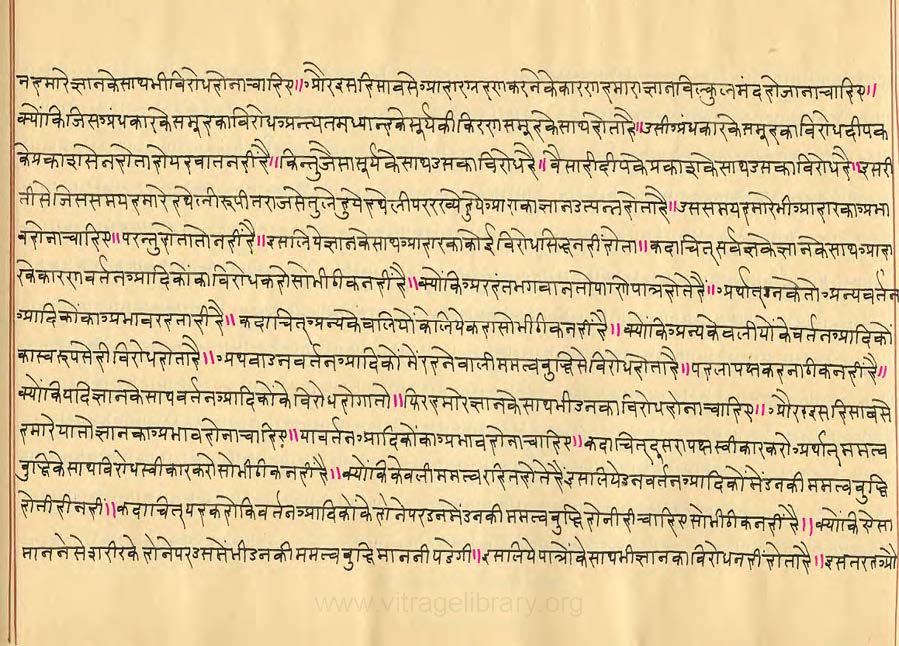 नहमारेज्ञानकेसाथभीविरोधहोनाचाहिए॥औरइसहिसाबसेआहारग्रहणकरनेकेकारणहमाराज्ञानबिल्कुलमंदहोजानाचाहिए॥
क्योंकिजिसअंधकारकेसमूहकाविरोधअत्यंतमध्यान्हकेसूर्यकीकिरणसमूहकेसाथहोताहै॥उसीअंधकारकेसमूहकाविरोधदीपक
केप्रकाशसेनहोताहोयहबातनहींहै॥किन्तुजैसासूर्यकेसाथउसकाविरोधहै॥वैसाहीदीपकेप्रकाशकेसाथउसकाविरोधहै॥इसरी
तीसेजिससमयहमारेहथेलीरूपीतराजसेतुलेहुयेहथेलीपररख्येहुये॥ज्ञानउत्पन्नहोताहै॥उससमयहमारेभीआहारकाअभा
वहोनाचाहिए॥परन्तुहोतातोनहींहै॥इसलियेज्ञानकेसाथआहारकाकोईविरोधसिद्धनहींहोता॥कदाचित्सर्वज्ञकेज्ञानकेसाथआहा
रकेकारणवर्तनआदिकोंकाविरोधकहोसोभीठीकनहींहै॥क्योंकिअरहंतभगवानतोपाणिपात्रहोतेहैं॥अर्थात्उनकेतोअन्यवर्तन
आदिकोंकाअभावरहताहीहै॥कदाचित्अन्यकेवलियोंकेलियेकहोसोभीठीकनहींहै॥क्योंकिअन्यकेवलीयोंकेवर्तनआदिकों
कास्वरूपसेहीविरोधहोताहै॥अथवाउनवर्तनआदिकोंमेंरहनेवालीममत्वबुद्धिसेविरोधहोताहै॥पहलापक्षकहनाठीकनहींहै॥
क्योंकियदिज्ञानकेसाथवर्तनआदिकोंकेविरोधहोगातो॥फिरहमारेज्ञानकेसाथभीउनकाविरोधहोनाचाहिए॥औरइसहिसाबसे
हमारेयातोज्ञानकाअभावहोनाचाहिए॥यावर्तनआदिकोंकाअभावहोनाचाहिए॥कदाचित्दूसरापक्षस्वीकारकरोअर्थात्ममत्व
बुद्धिकेसाथविरोधस्वीकारकरोसोभीठीकनहींहै॥क्योंकिकेवलीममत्वरहितहोतेहैंइसलियेउनवर्तनआदिकोंमेंउनकीममत्वबुद्धि
होतीहीनहीं॥कदाचित्यहकहोकिवर्तनआदिकोंकेहोनेपरउनमेंउनकीममत्वबुद्धिहोनीहीचाहिएसोभीठीकनहींहै॥क्योंकिऐसा
माननेसेशरीरकेहोनेपरउसमेंभीउनकीममत्वबुद्धिमाननीपडेगी॥इसलियेपात्रोंकेसाथभीज्ञानकाविरोधनहींहोताहै॥इसतरहऔ
www.vitragelibrary.org